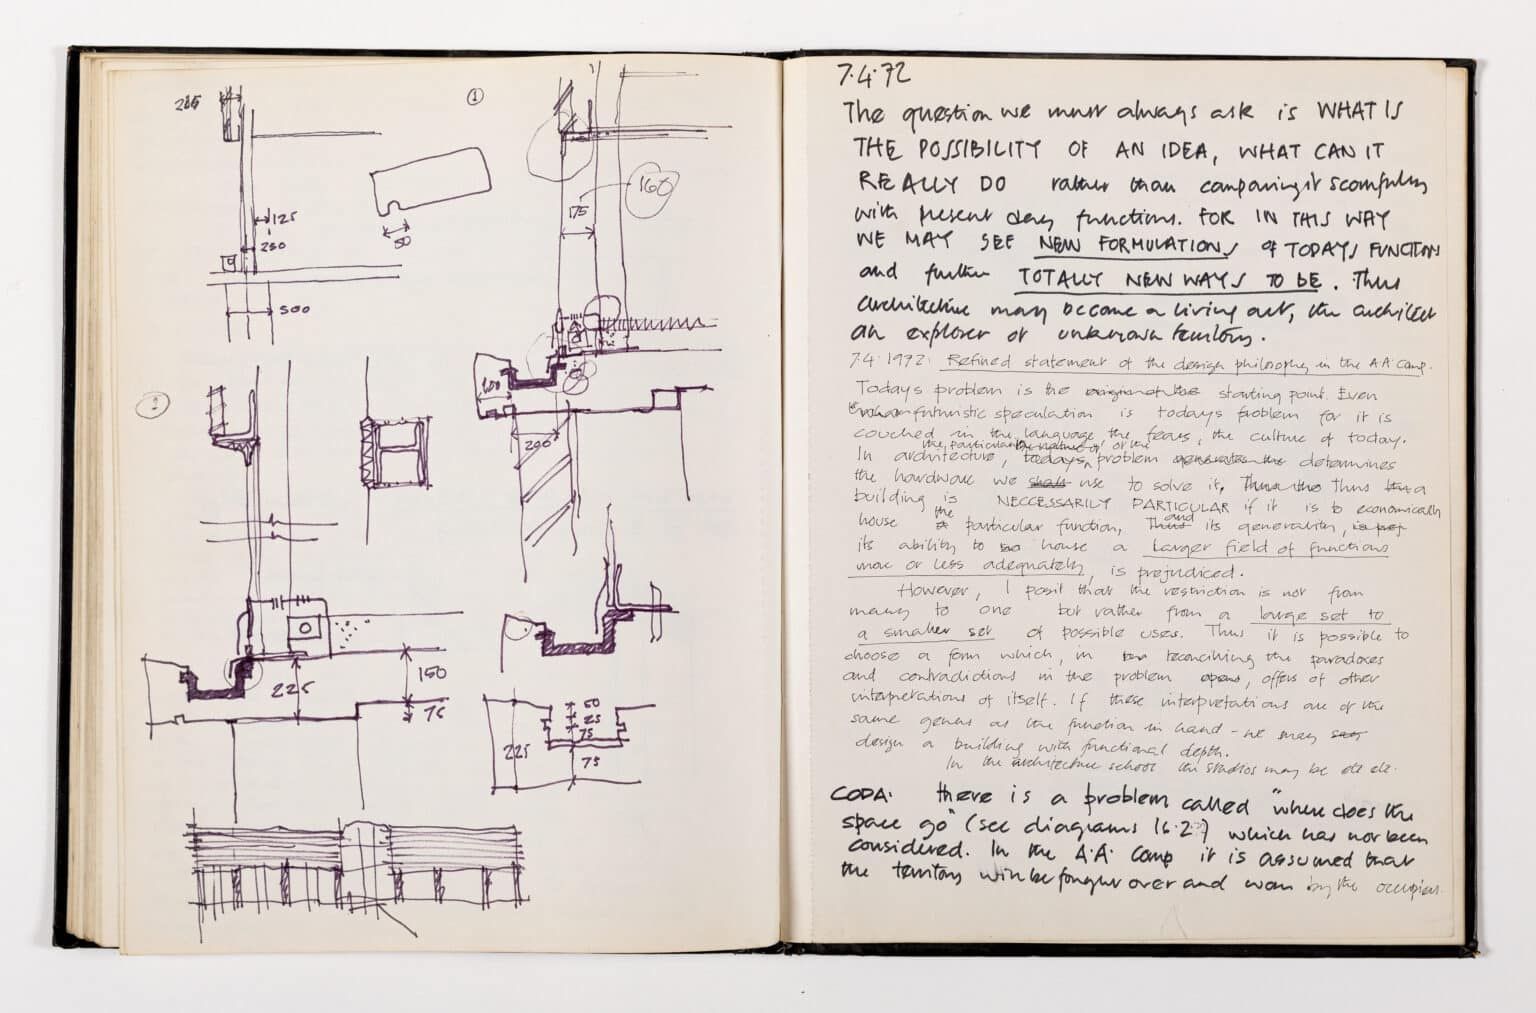 215
①
125
250
50
500
160
175
①
100
200
225
150
75
50
25
75
225
75
7.4.72
The question we must always ask is WHAT IS
THE POSSIBILITY OF AN IDEA, WHAT CAN IT
REALLY DO rather than comparing it scornfully
with present day functions. FOR IN THIS WAY
WE MAY SEE NEW FORMULATIONS of TODAYS FUNCTIONS
and further TOTALLY NEW WAYS TO BE. Thus
architecture may become a living art, the architect
an explorer of unknown territory.
7.4.1972: Refined statement of the design philosophy in the A.A. Comp.
Todays problem is the starting point. Even
futuristic speculation is todays problem for it is
couched in the language, the fears, the culture of today.
the particular or the
In architecture, todays problem determines
the hardware we shall use to solve it. Thus a
building is NECCESSARILY PARTICULAR if it is to economically
house the particular function, and its generality,
its ability to house a larger field of functions
more or less adequately, is prejudiced.
However, I posit that the restriction is not from
many to one but rather from a large set to
a smaller set of possible uses. Thus it is possible to
choose a form which, in reconciling the paradoxes
and contradictions in the problem, offers of other
interpretations of itself. If these interpretations are of the
same genus as the function in hand - we may
design a building with functional depth.
In the architecture school the studios may be etc etc.
CODA: there is a problem called "where does the
space go" (see diagrams 16.2.) which has not been
considered. In the A.A. Comp it is assumed that
the territory will be fought over and won by the occupiers.